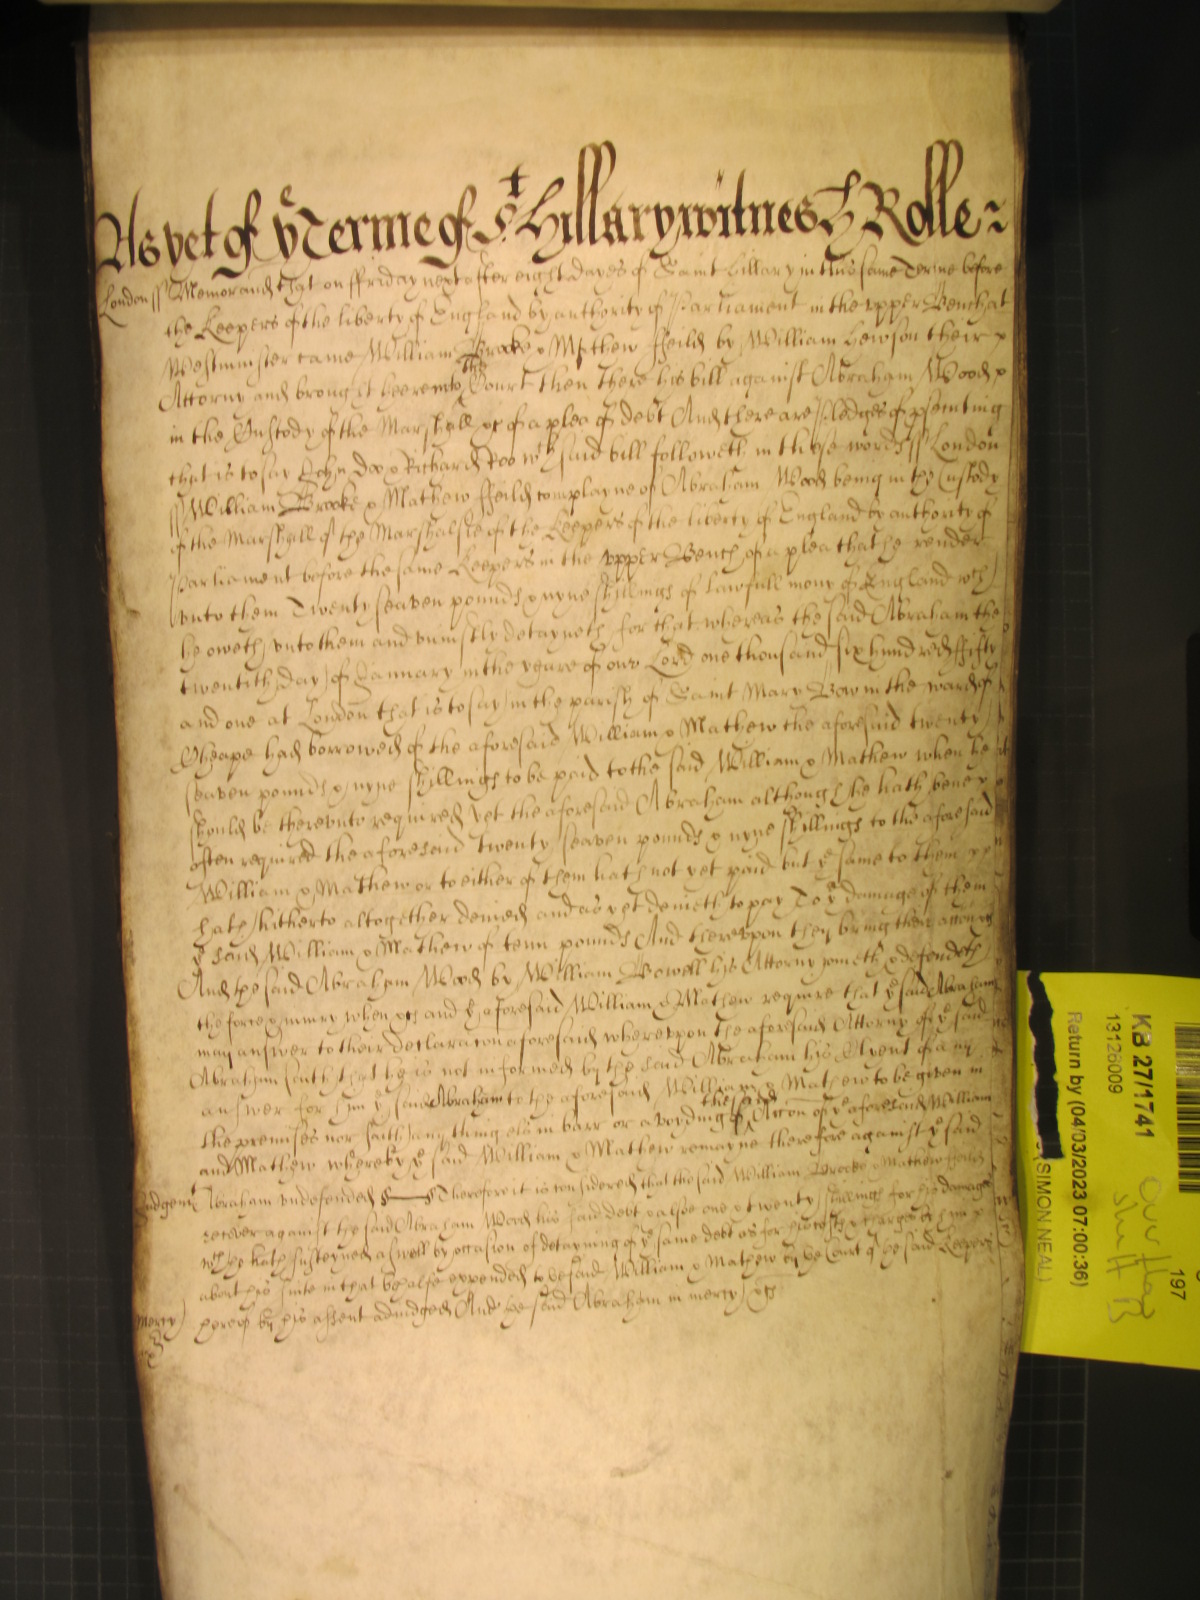 As yet of ye Terme of St Hillary witnes H Rolle
London ss Memorand that on ffriday next after eight dayes of Saint Hillary in this same Terme before
the Keepers of the liberty of England by authority of Parliament in the vpper Bench at
Westminster came William Brooke & Mathew ffeild by William Hewson their
Attorny and brought heere into the Court then there his bill against Abraham Wood
in the Custody of the Marshall &c of a plea of debt And there are pledges of psecuting
that is to say John Doo & Richard Roo wch said bill followeth in these words ss London
ss William Brooke & Mathew ffeild complayne of Abraham Wood being in the Custody
of the Marshall of the Marshalsie of the Keepers of the liberty of England by authority of
Parliament before the same Keepers in the vpper Bench of a plea that he render
vnto them Twenty seaven pounds & nyne shillings of lawfull mony of England wch
he oweth vnto them and vniustly detayneth for that whereas the said Abraham the
twentith day of January in the yeare of our Lord one thousand six hundred ffifty
and one at London that is to say in the parish of Saint Mary Bow in the ward of
Cheape had borrowed of the aforesaid William & Mathew the aforesaid twenty
seaven pounds & nyne shillings to be paid to the said William & Mathew when he
should be therevnto required yet the aforesaid Abraham although he hath bene
often required the aforesaid twenty seaven pounds & nyne shillings to the aforesaid
William & Mathew or to either of them hath not yet paid but ye same to them
hath hitherto altogether denied and as yet denieth to pay To ye damage of them
ye said William & Mathew of tenn pounds And therevpon they bring their
And the said Abraham Wood by William Bowell his Attorny cometh & defendeth
the force & iniury when &c and ye aforesaid William & Mathew require that ye said Abraham
may answer to their declaracon aforesaid wherevpon the aforesaid Attorny of ye said
Abraham saith that he is not informed by the said Abraham his Client of any
answer for him ye said Abraham to the aforesaid William & Mathew to be given in
the premises nor saith any thing els in barr or avoyding of the said Accon of ye aforesaid William
and Mathew whereby ye said William & Mathew remayne therefore against ye said
Judgent Abraham vndefended Therefore it is considered that the said William Brooke & Mathew ffeild
recover against the said Abraham Wood his said debt & alsoe one & twenty shillings for his damage
wch he hath susteyned aswell by occasion of detayning of ye same debt as for his costs & charges by him
about his suite in that behalfe expended to ye said William & Mathew by ye Court of ye said Keepers
Mercy hereof by his assent adiudged And ye said Abraham in mercy &c
KB 27/1741
13126009
Return by (04/03/2023 07:00:36)
(SIMON NEAL)
197